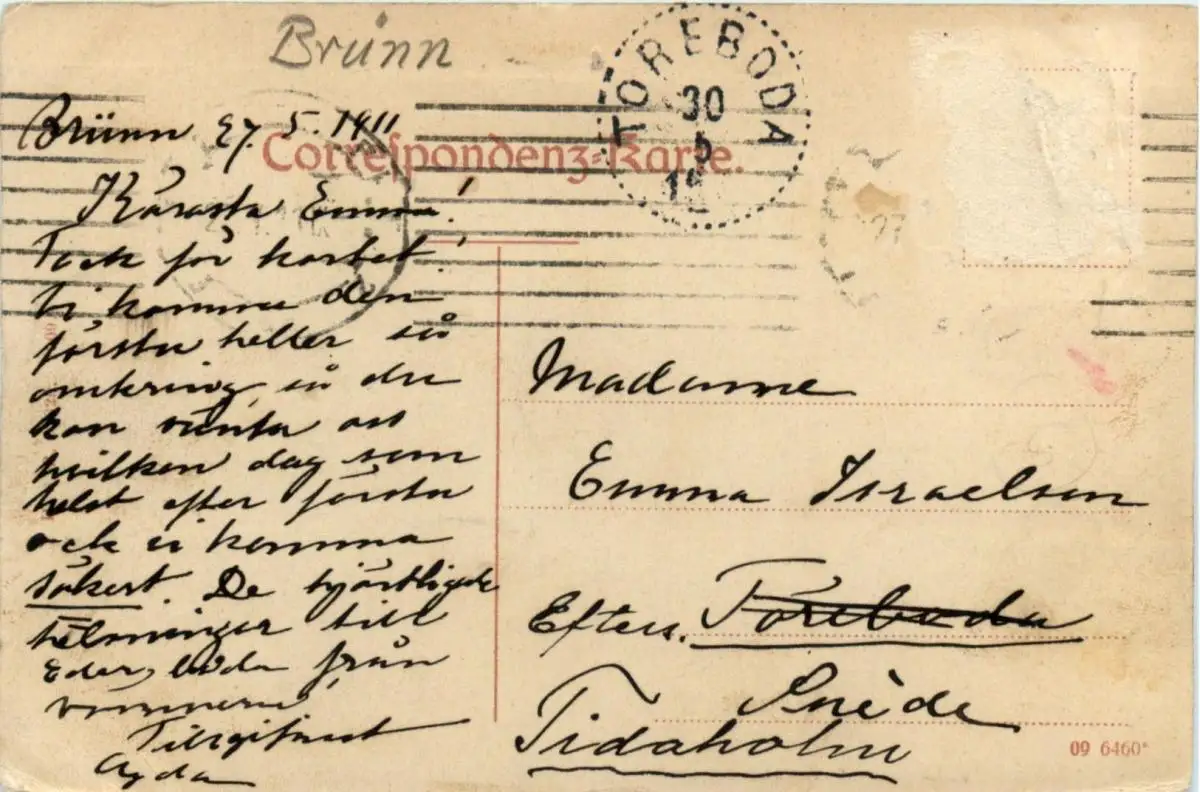 Brünn
Brünn 27. 5. 1911
Correspondenz-Karte.
TÖREBODA
30
5
Kärasta Emma!
Tack för kortet!
Vi komma den
första heller så
omkring, så du
kan vänta oss
hvilken dag som
helst efter första
ock vi komma
säkert. De hjärtligaste
helsningar till
Eder båda från
vännerna
Tillgifnast
Agda
Madame
Emma Israelson
Töreboda
Tidaholm
09 6460*